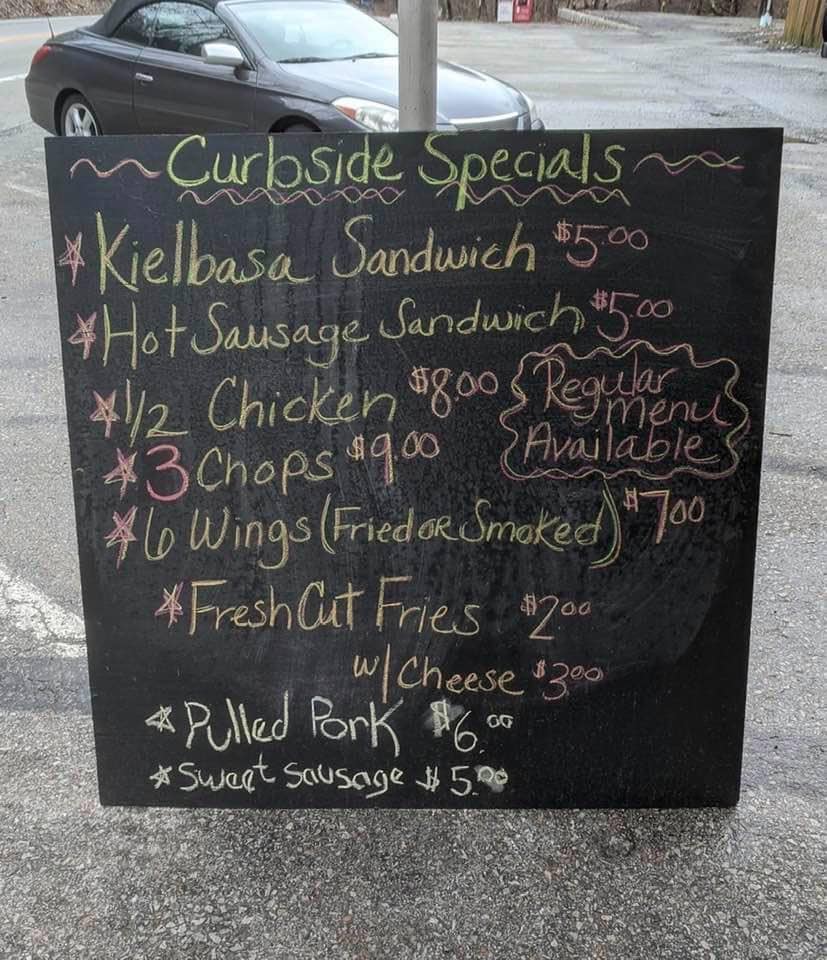 Curbside Specials
Kielbasa Sandwich $5.00
Hot Sausage Sandwich $5.00
1/2 Chicken $8.00
Regular
menu
Available
3 Chops $9.00
6 Wings (Fried or Smoked) $7.00
Fresh Cut Fries $2.00
w/ Cheese $3.00
Pulled Pork $6.00
Sweet Sausage $5.00